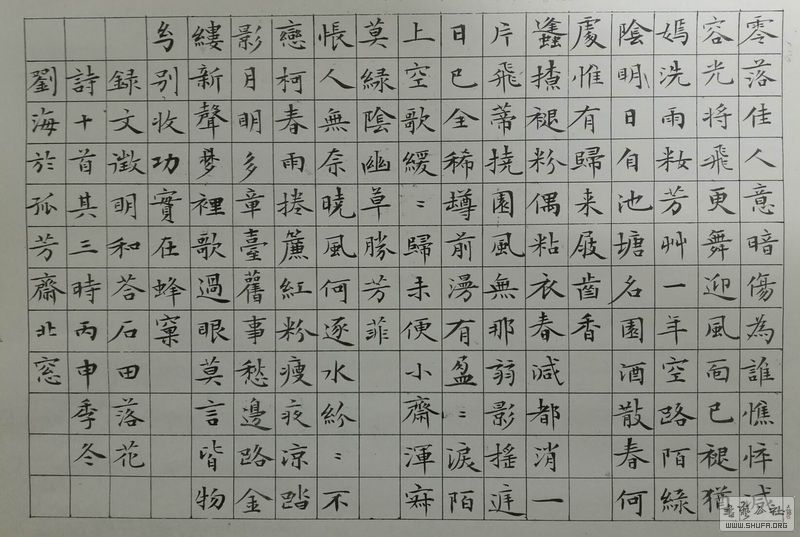 零落佳人意暗傷為誰憔悴減
容光將飛更舞迎風面已褪猶
嫣洗雨粧芳艸一年空路陌綠
陰明日自池塘名園酒散春何
處惟有歸来屐齒香
蠭撩褪粉偶粘衣春減都消一
片飛蒂撓園風無那弱影搖庭
日已全稀罇前漫有盈〻淚陌
上空歌緩〻歸未便小齋渾寂
莫綠陰幽草勝芳菲
悵人無奈曉風何逐水紛〻不
戀柯春雨捲簾紅粉瘦夜凉踏
影月明多章臺舊事愁邊路金
縷新聲夢裡歌過眼莫言皆物
幻别收功實在蜂窠
録文徵明和荅石田落花
詩十首其三時丙申季冬
劉海於孤芳齋北窓
WWW.SHUFA.ORG